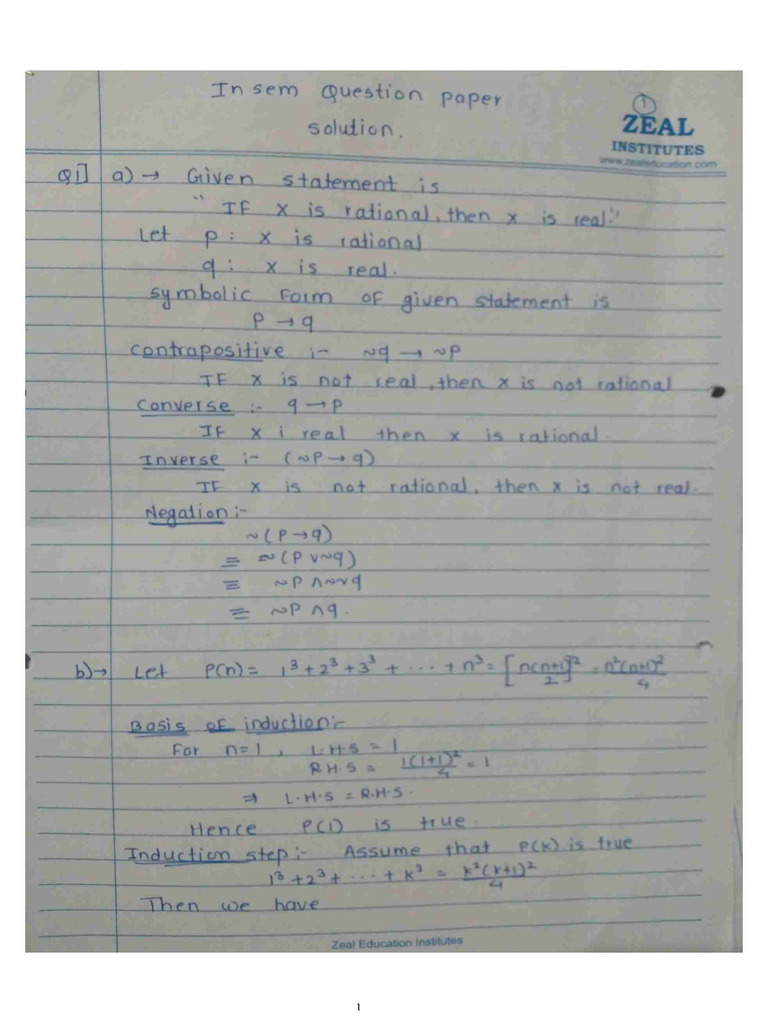 In sem Question paper
solution.
①
ZEAL
INSTITUTES
www.zealeducation.com
Q1] a) → Given statement is
" If x is rational, then x is real."
Let p : x is rational
q : x is real.
symbolic form of given statement is
P → q
contrapositive :- ~q → ~P
IF x is not real, then x is not rational
Converse :- q → P
If x i real then x is rational.
Inverse :- (~P → q)
IF x is not rational, then x is not real.
Negation :-
~(P → q)
≡ ~(P ∨ ~q)
≡ ~P ∧ ~~q
≡ ~P ∧ q.
b) → Let P(n) = 1³ + 2³ + 3³ + ... + n³ = [n(n+1)/2]² = n²(n+1)²/4
Basis of induction:-
For n=1, L.H.S = 1
R.H.S = 1(1+1)²/4 = 1
⇒ L.H.S = R.H.S.
Hence P(1) is true.
Induction step:- Assume that P(k) is true
1³ + 2³ + ... + k³ = k²(k+1)²/4
Then we have
Zeal Education Institutes
1